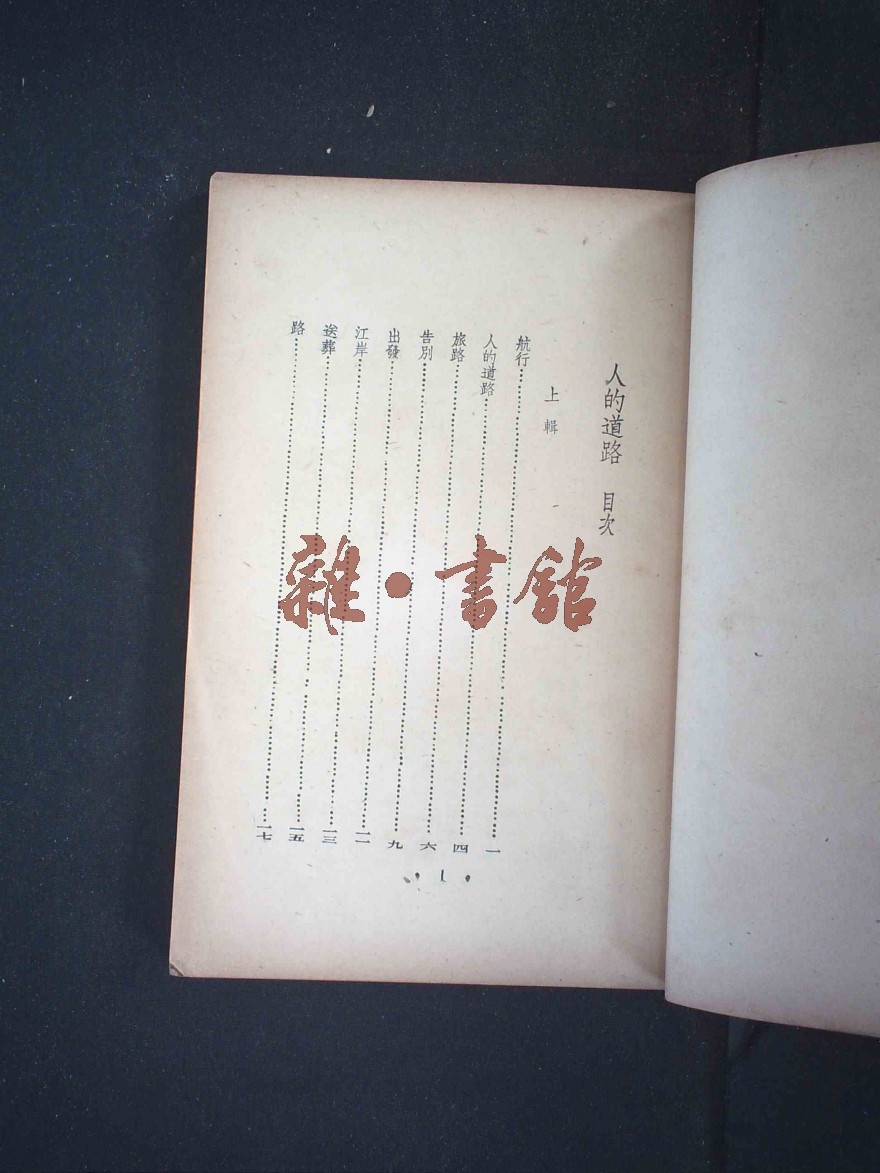 人的道路 目次
上輯
航行……一
人的道路……四
旅路……六
告別……九
出發……一一
江岸……一三
送葬……一五
路……一七
·1·
雜·書館